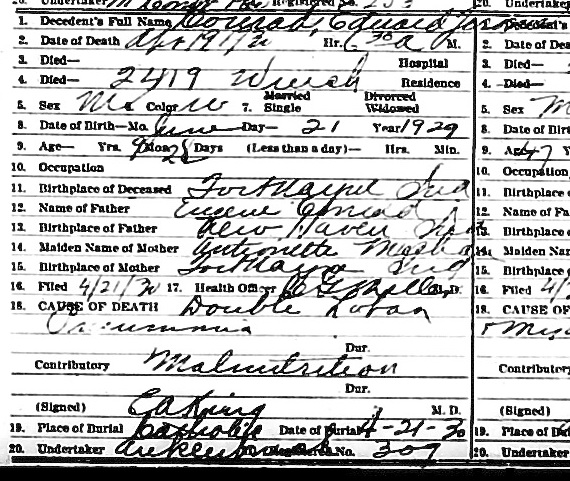 20. Undertaker Registered No. 253 20. Undertaker
1. Decedent's Full Name Conrad, Eduard
2. Date of Death Apr 19 1930 Hr. 6 30 a M. 2. Date of Dea
3. Died— Hospital 3. Died—
4. Died— 2419 Residence 4. Died—
5. Sex Ma Color W 7. Married Single Divorced Widowed 5. Sex M
8. Date of Birth—Mo. June Day— 21 Year 1929 8. Date of Birt
9. Age— Yrs. 9 Mos. 28 Days (Less than a day)— Hrs. Min. 9. Ag 47 Y
10. Occupation 10. Occupation
11. Birthplace of Deceased Fort Wayne Ind 11. Birthplace
12. Name of Father Eugene Conrad 12. Name of Fa
13. Birthplace of Father New Haven Ind 13. Birthplace
14. Maiden Name of Mother Antoinette 14. Maiden Nam
15. Birthplace of Mother Fort Wayne Ind 15. Birthplace
16. Filed 4/21/30 17. Health Officer M.D. 16. Filed 4/2
18. CAUSE OF DEATH Double Lobar 18. CAUSE OF
Pneumonia
Dur.
Contributory Malnutrition Contributory
Dur.
(Signed) E A King M. D. (Signed)
19. Place of Burial Catholic Date of Burial 4-21-30 19. Place of Bu
20. Undertaker Registered No. 309 20. Undertaker